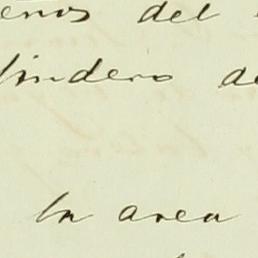 enos del
lindero de
la area